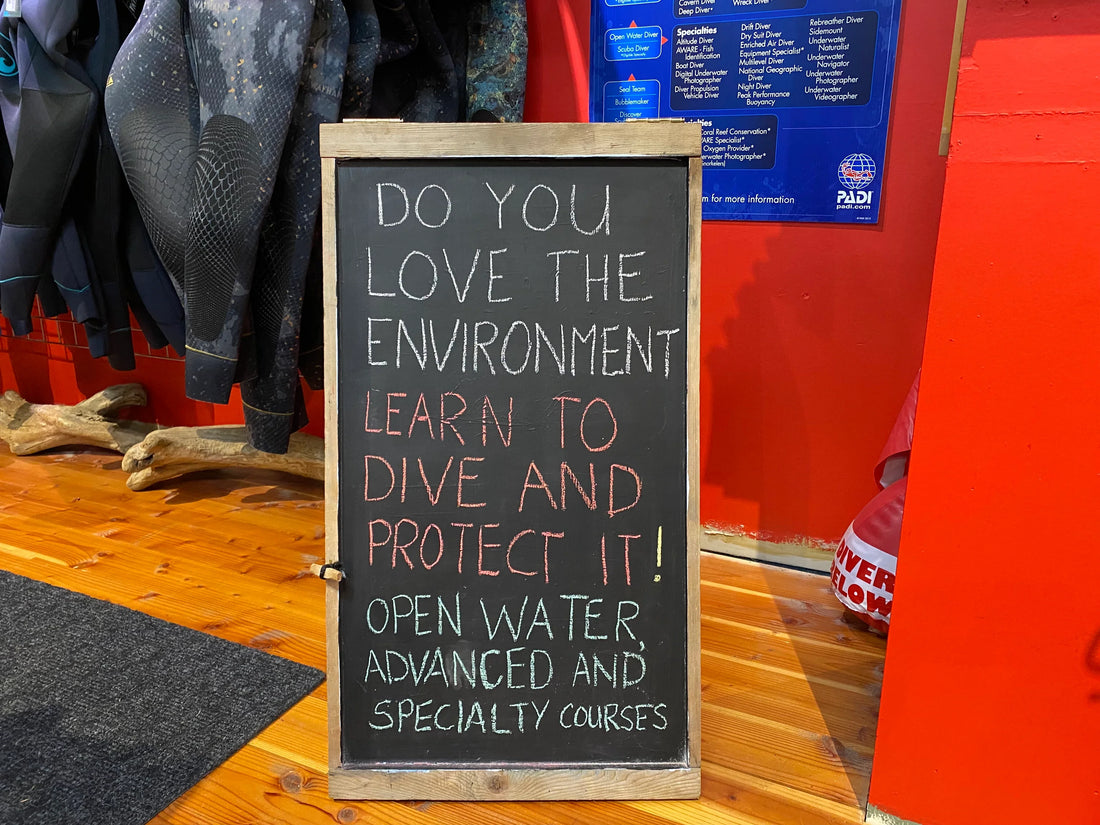 Cavern Diver
Deep Diver*
Wreck Diver*
Open Water Diver
Scuba Diver
Seal Team
Bubblemaker
Discover
Specialties
Altitude Diver
AWARE - Fish
Identification
Boat Diver
Digital Underwater
Photographer
Diver Propulsion
Vehicle Diver
Drift Diver
Dry Suit Diver
Enriched Air Diver
Equipment Specialist*
Multilevel Diver
National Geographic
Diver
Night Diver
Peak Performance
Buoyancy
Rebreather Diver
Sidemount
Underwater
Naturalist
Underwater
Navigator
Underwater
Photographer
Underwater
Videographer
Coral Reef Conservation*
Specialist*
Oxygen Provider*
Photographer*
for more information
PADI
padi.com
DO YOU
LOVE THE
ENVIRONMENT
LEARN TO
DIVE AND
PROTECT IT!
OPEN WATER,
ADVANCED AND
SPECIALTY COURSES
DIVER
ELOW